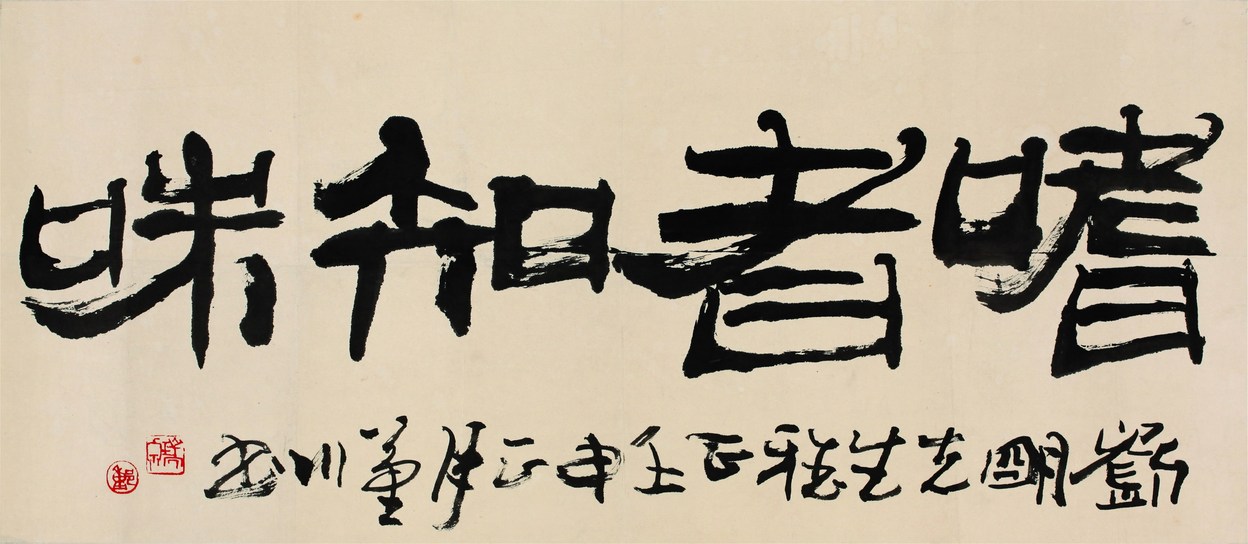 嗜者知味
劉明先生雅正壬申正月董川書